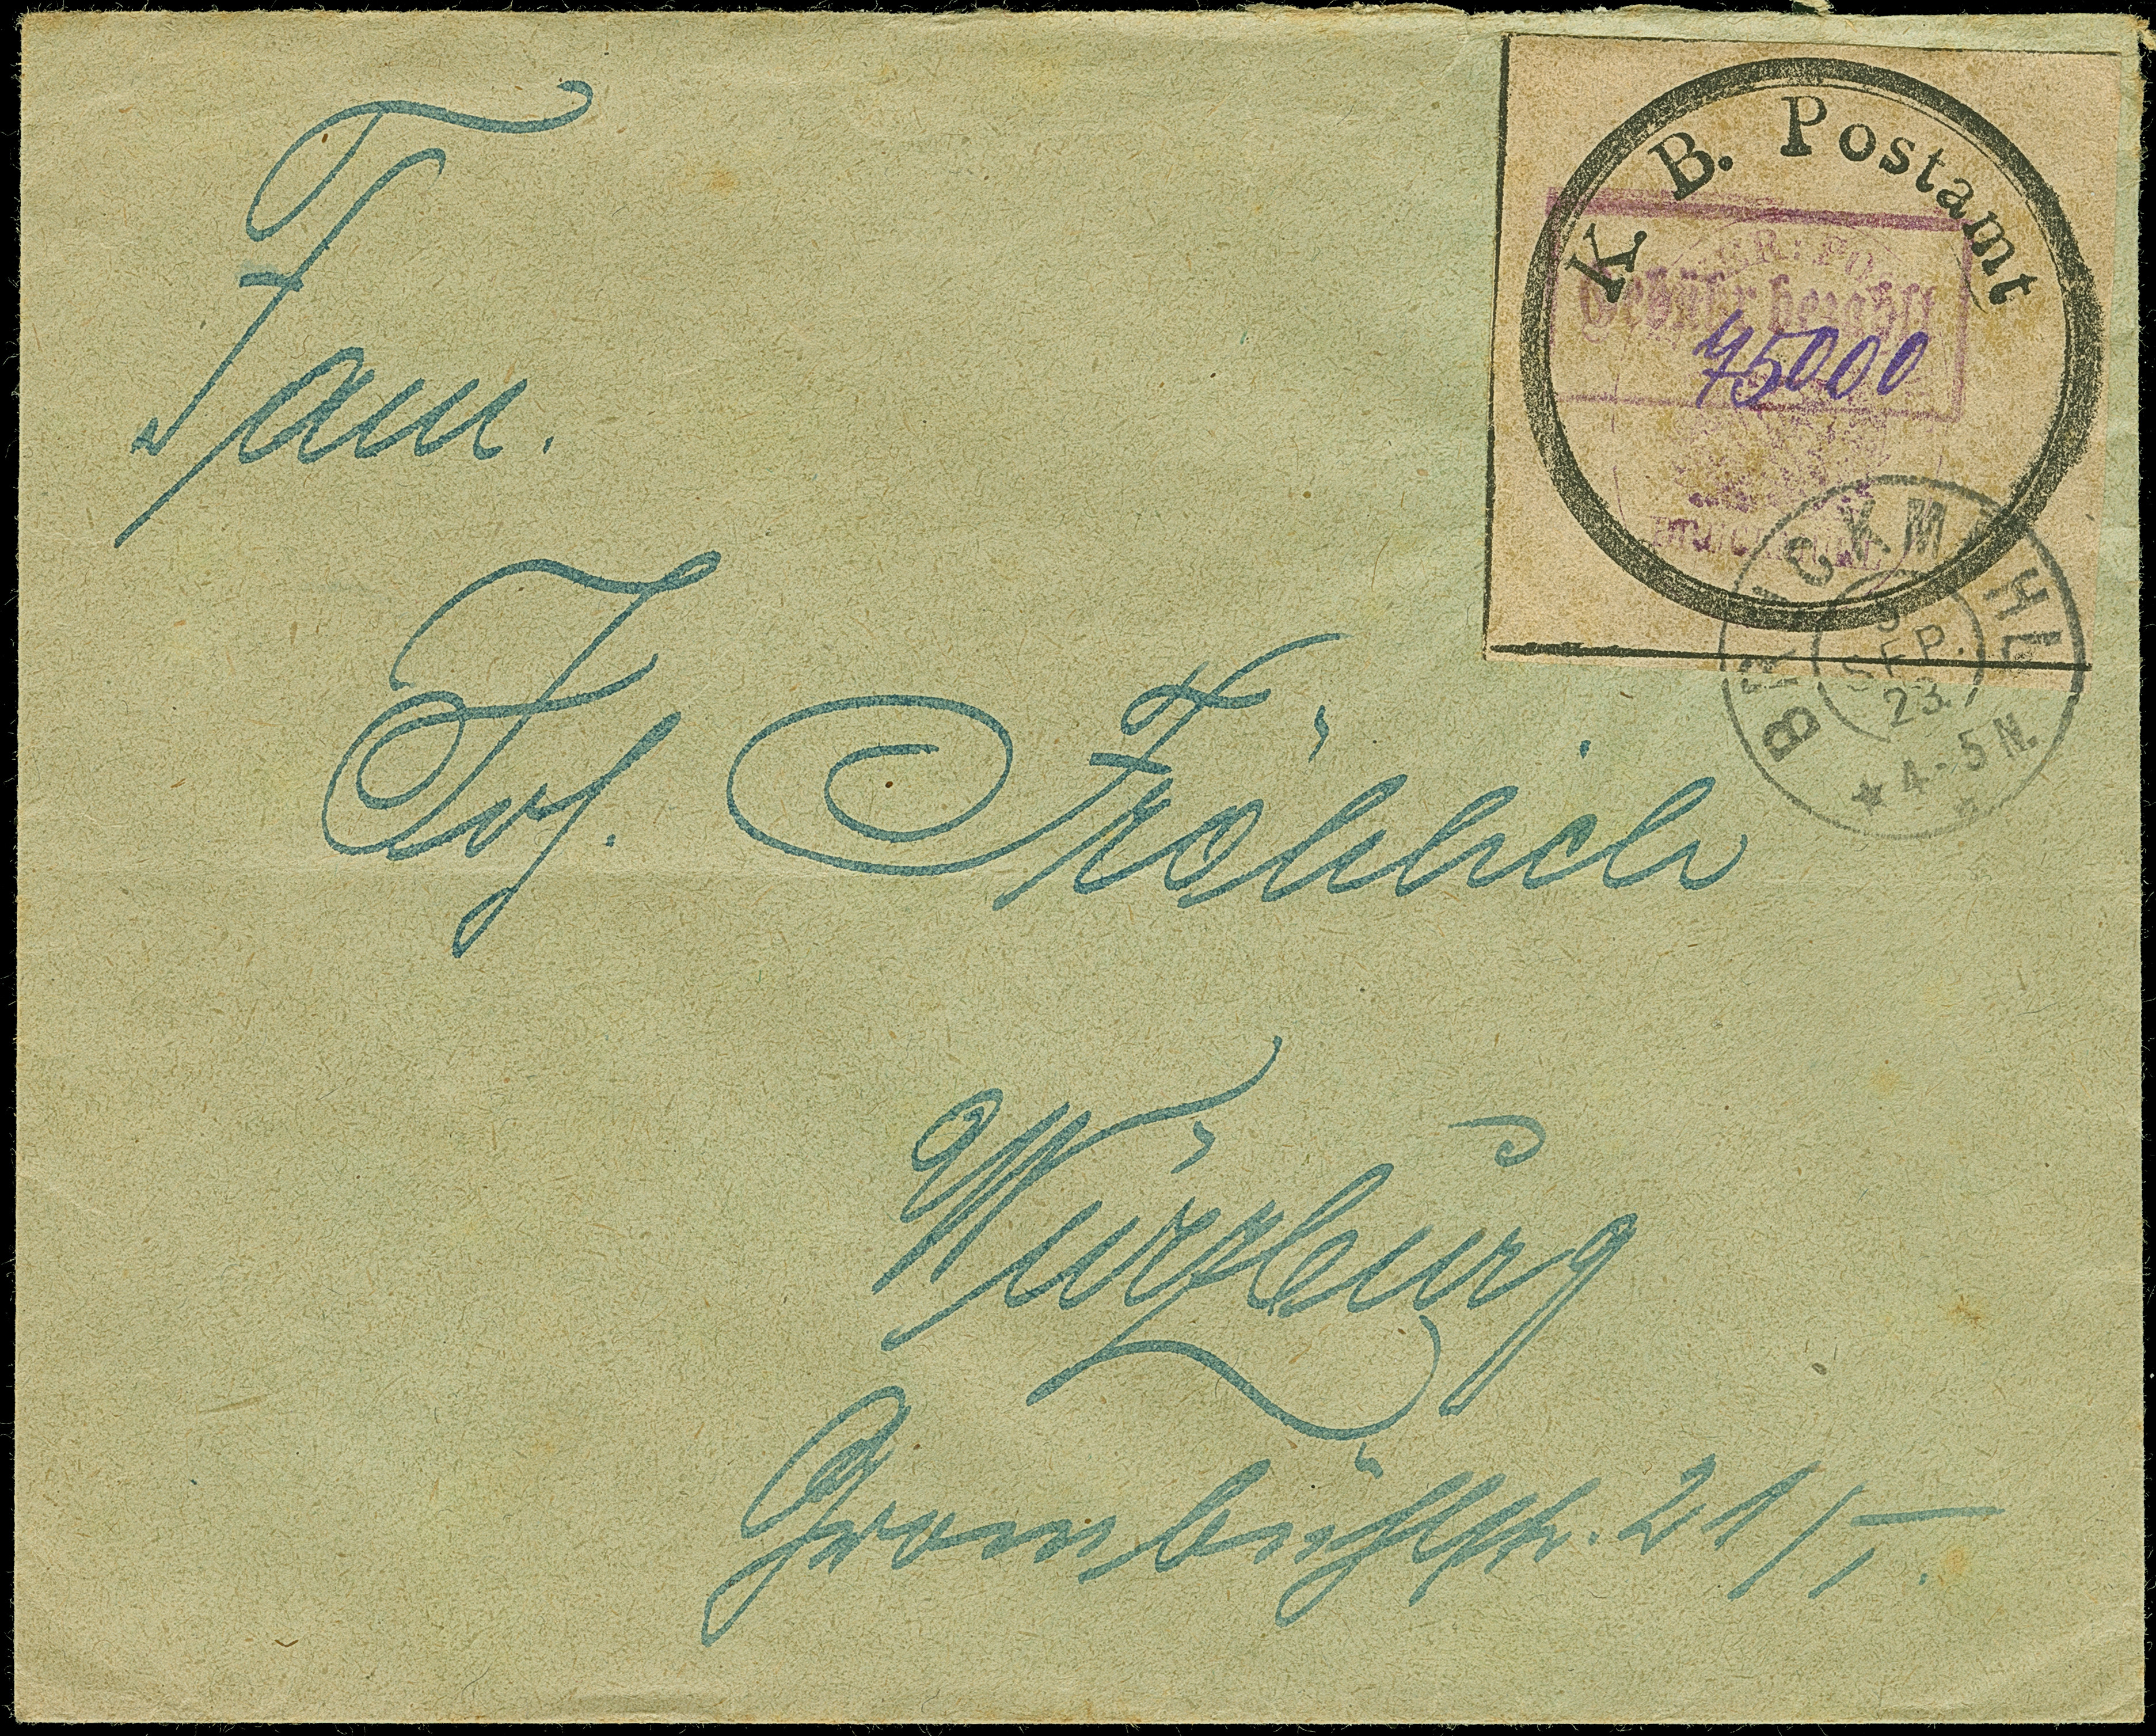 K. B. Postamt
Gebühr bezahlt
75000
BRUCKMÜHL
SEP.
23.
★ 4-5 N.
Fam.
Jos. Fröhlich
Würzburg
Grombühlstr. 21/I.